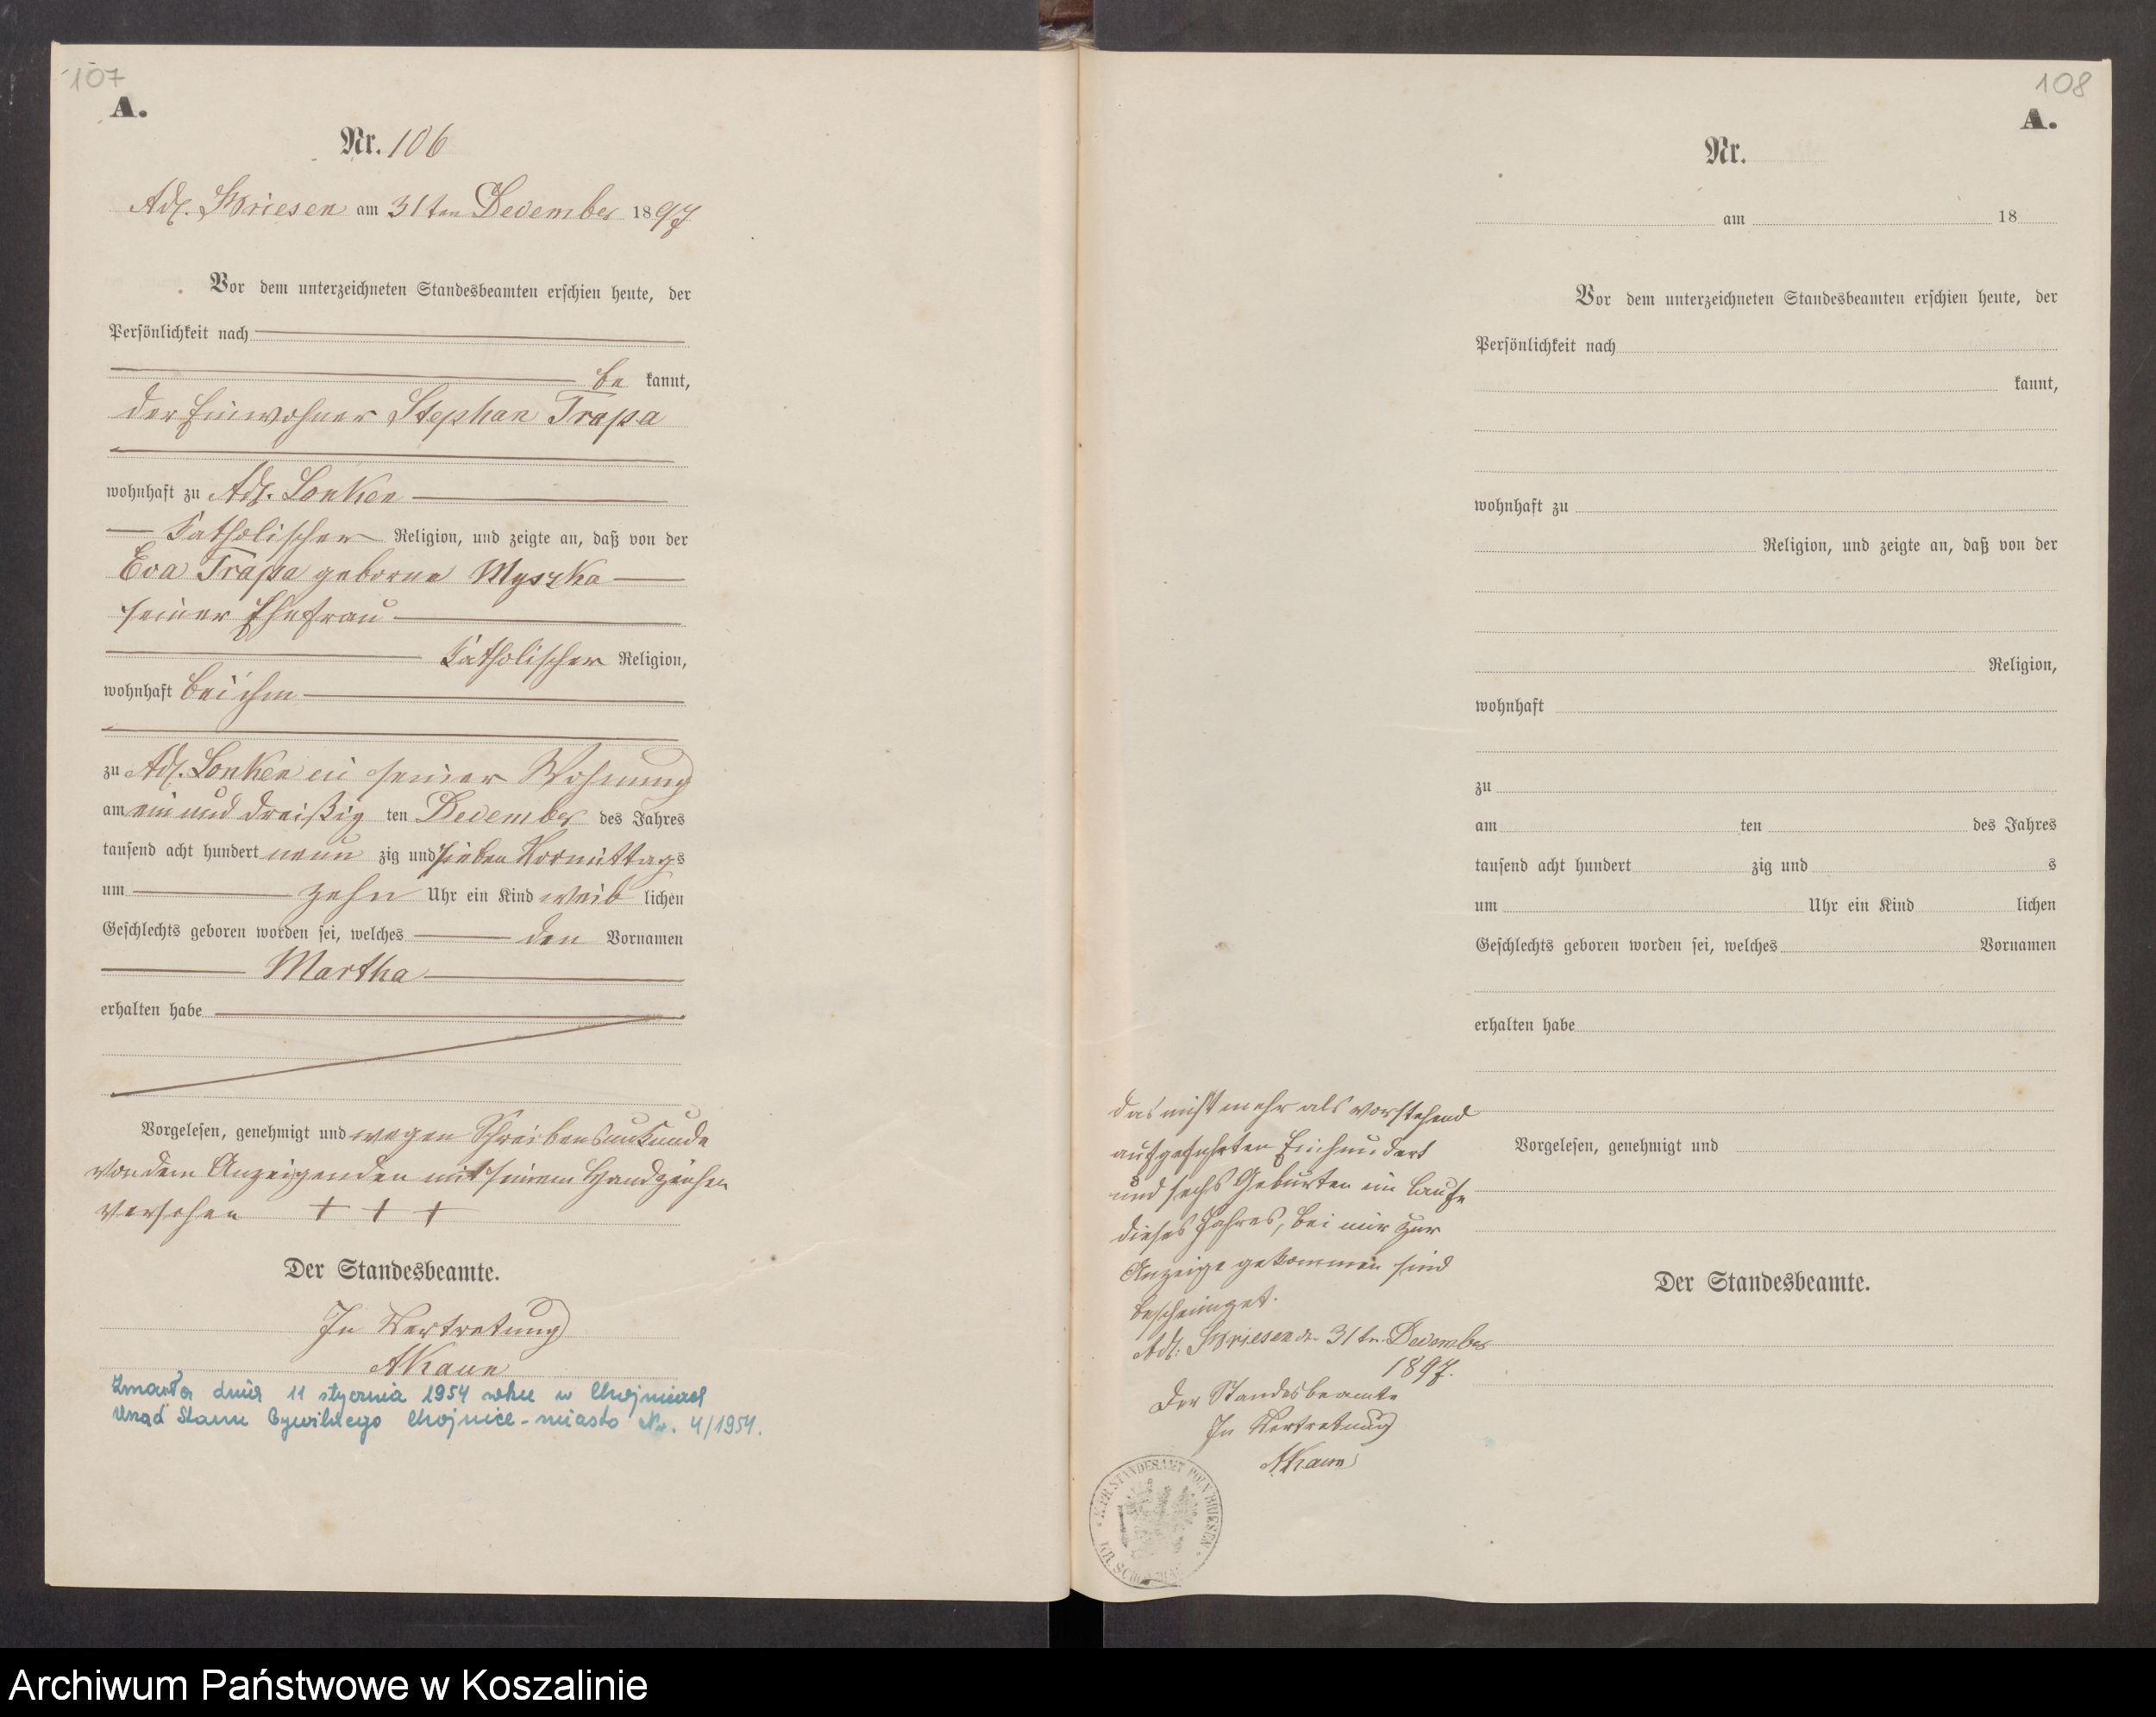 107
A.
Nr. 106
Adl. Briesen am 31ten December 1897
Vor dem unterzeichneten Standesbeamten erschien heute, der
Persönlichkeit nach
be kannt,
der Einwohner Stephan Trapa
wohnhaft zu Adl. Lonken
katholischer Religion, und zeigte an, daß von der
Eva Trapa geborne Myszka
seiner Ehefrau
katholischer Religion,
wohnhaft bei ihm
zu Adl. Lonken in seiner Wohnung
am ein und dreißig ten December des Jahres
tausend acht hundert neun zig und sieben Vormittags
um zehn Uhr ein Kind weib lichen
Geschlechts geboren worden sei, welches den Vornamen
Martha
erhalten habe
Vorgelesen, genehmigt und wegen Schreibensunkunde
von dem Anzeigenden mit seinem Handzeichen
versehen + + +
Der Standesbeamte.
In Vertretung
AKaun
Zmarła dnia 11 stycznia 1954 roku w Chojnicach
Urząd Stanu Cywilnego Chojnice-miasto Nr. 4/1954.
108
A.
Nr.
am 18
Vor dem unterzeichneten Standesbeamten erschien heute, der
Persönlichkeit nach
kannt,
wohnhaft zu
Religion, und zeigte an, daß von der
Religion,
wohnhaft
zu
am ten des Jahres
tausend acht hundert zig und s
um Uhr ein Kind lichen
Geschlechts geboren worden sei, welches Vornamen
erhalten habe
Vorgelesen, genehmigt und
Der Standesbeamte.
Das nicht mehr als vorstehend
aufgeführten Einhundert
und sechs Geburten im Laufe
dieses Jahres, bei mir zur
Anzeige gekommen sind
bescheinget.
Adl. Briesen d. 31tn December
1897.
Der Standesbeamte
In Vertretung
AKaun
K. PR. STANDESAMT POLN BRIESEN
KR. SCHLOCHAU
Archiwum Państwowe w Koszalinie